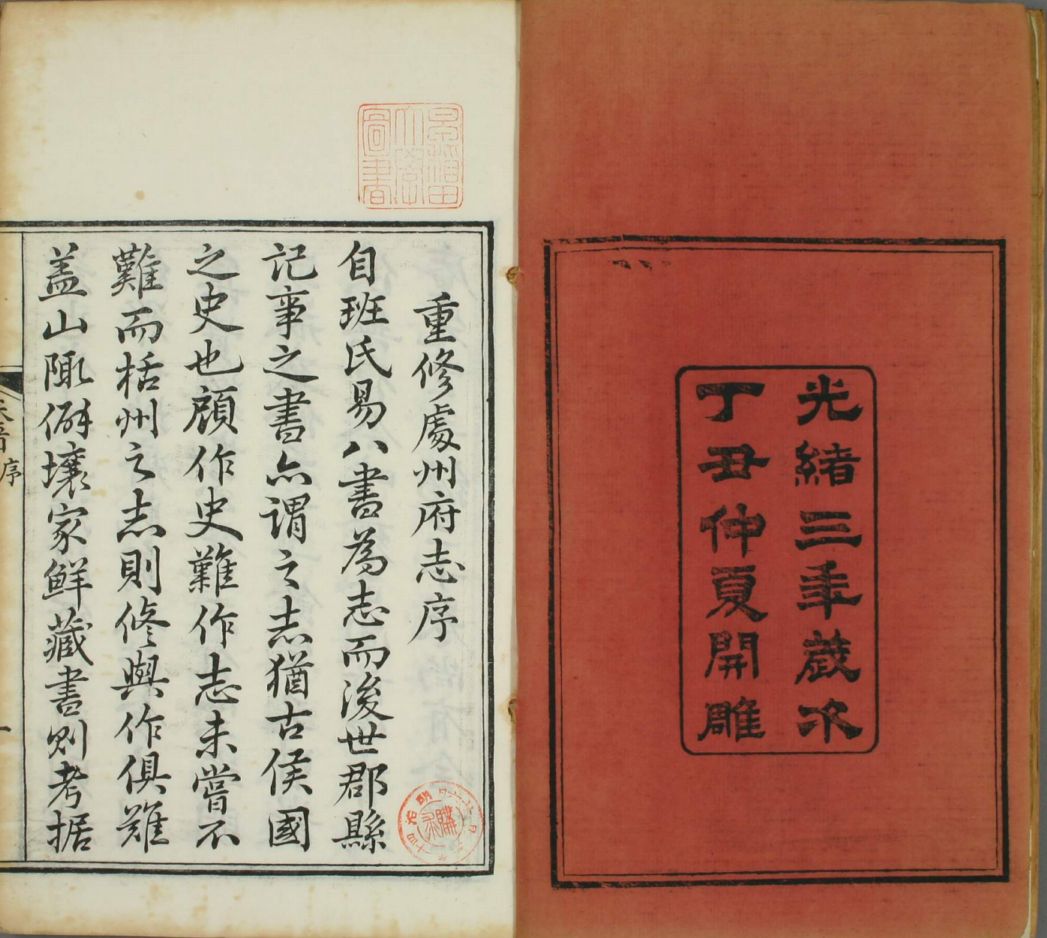 光緒三年歲次
丁丑仲夏開雕
早稻田
大學
圖書
重修處州府志序
自班氏易八書為志而後世郡縣
記事之書亦謂之志猶古侯國
之史也顧作史難作志未嘗不
難而栝州之志則修與作俱難
盖山陬僻壤家鮮藏書則考据
序
一